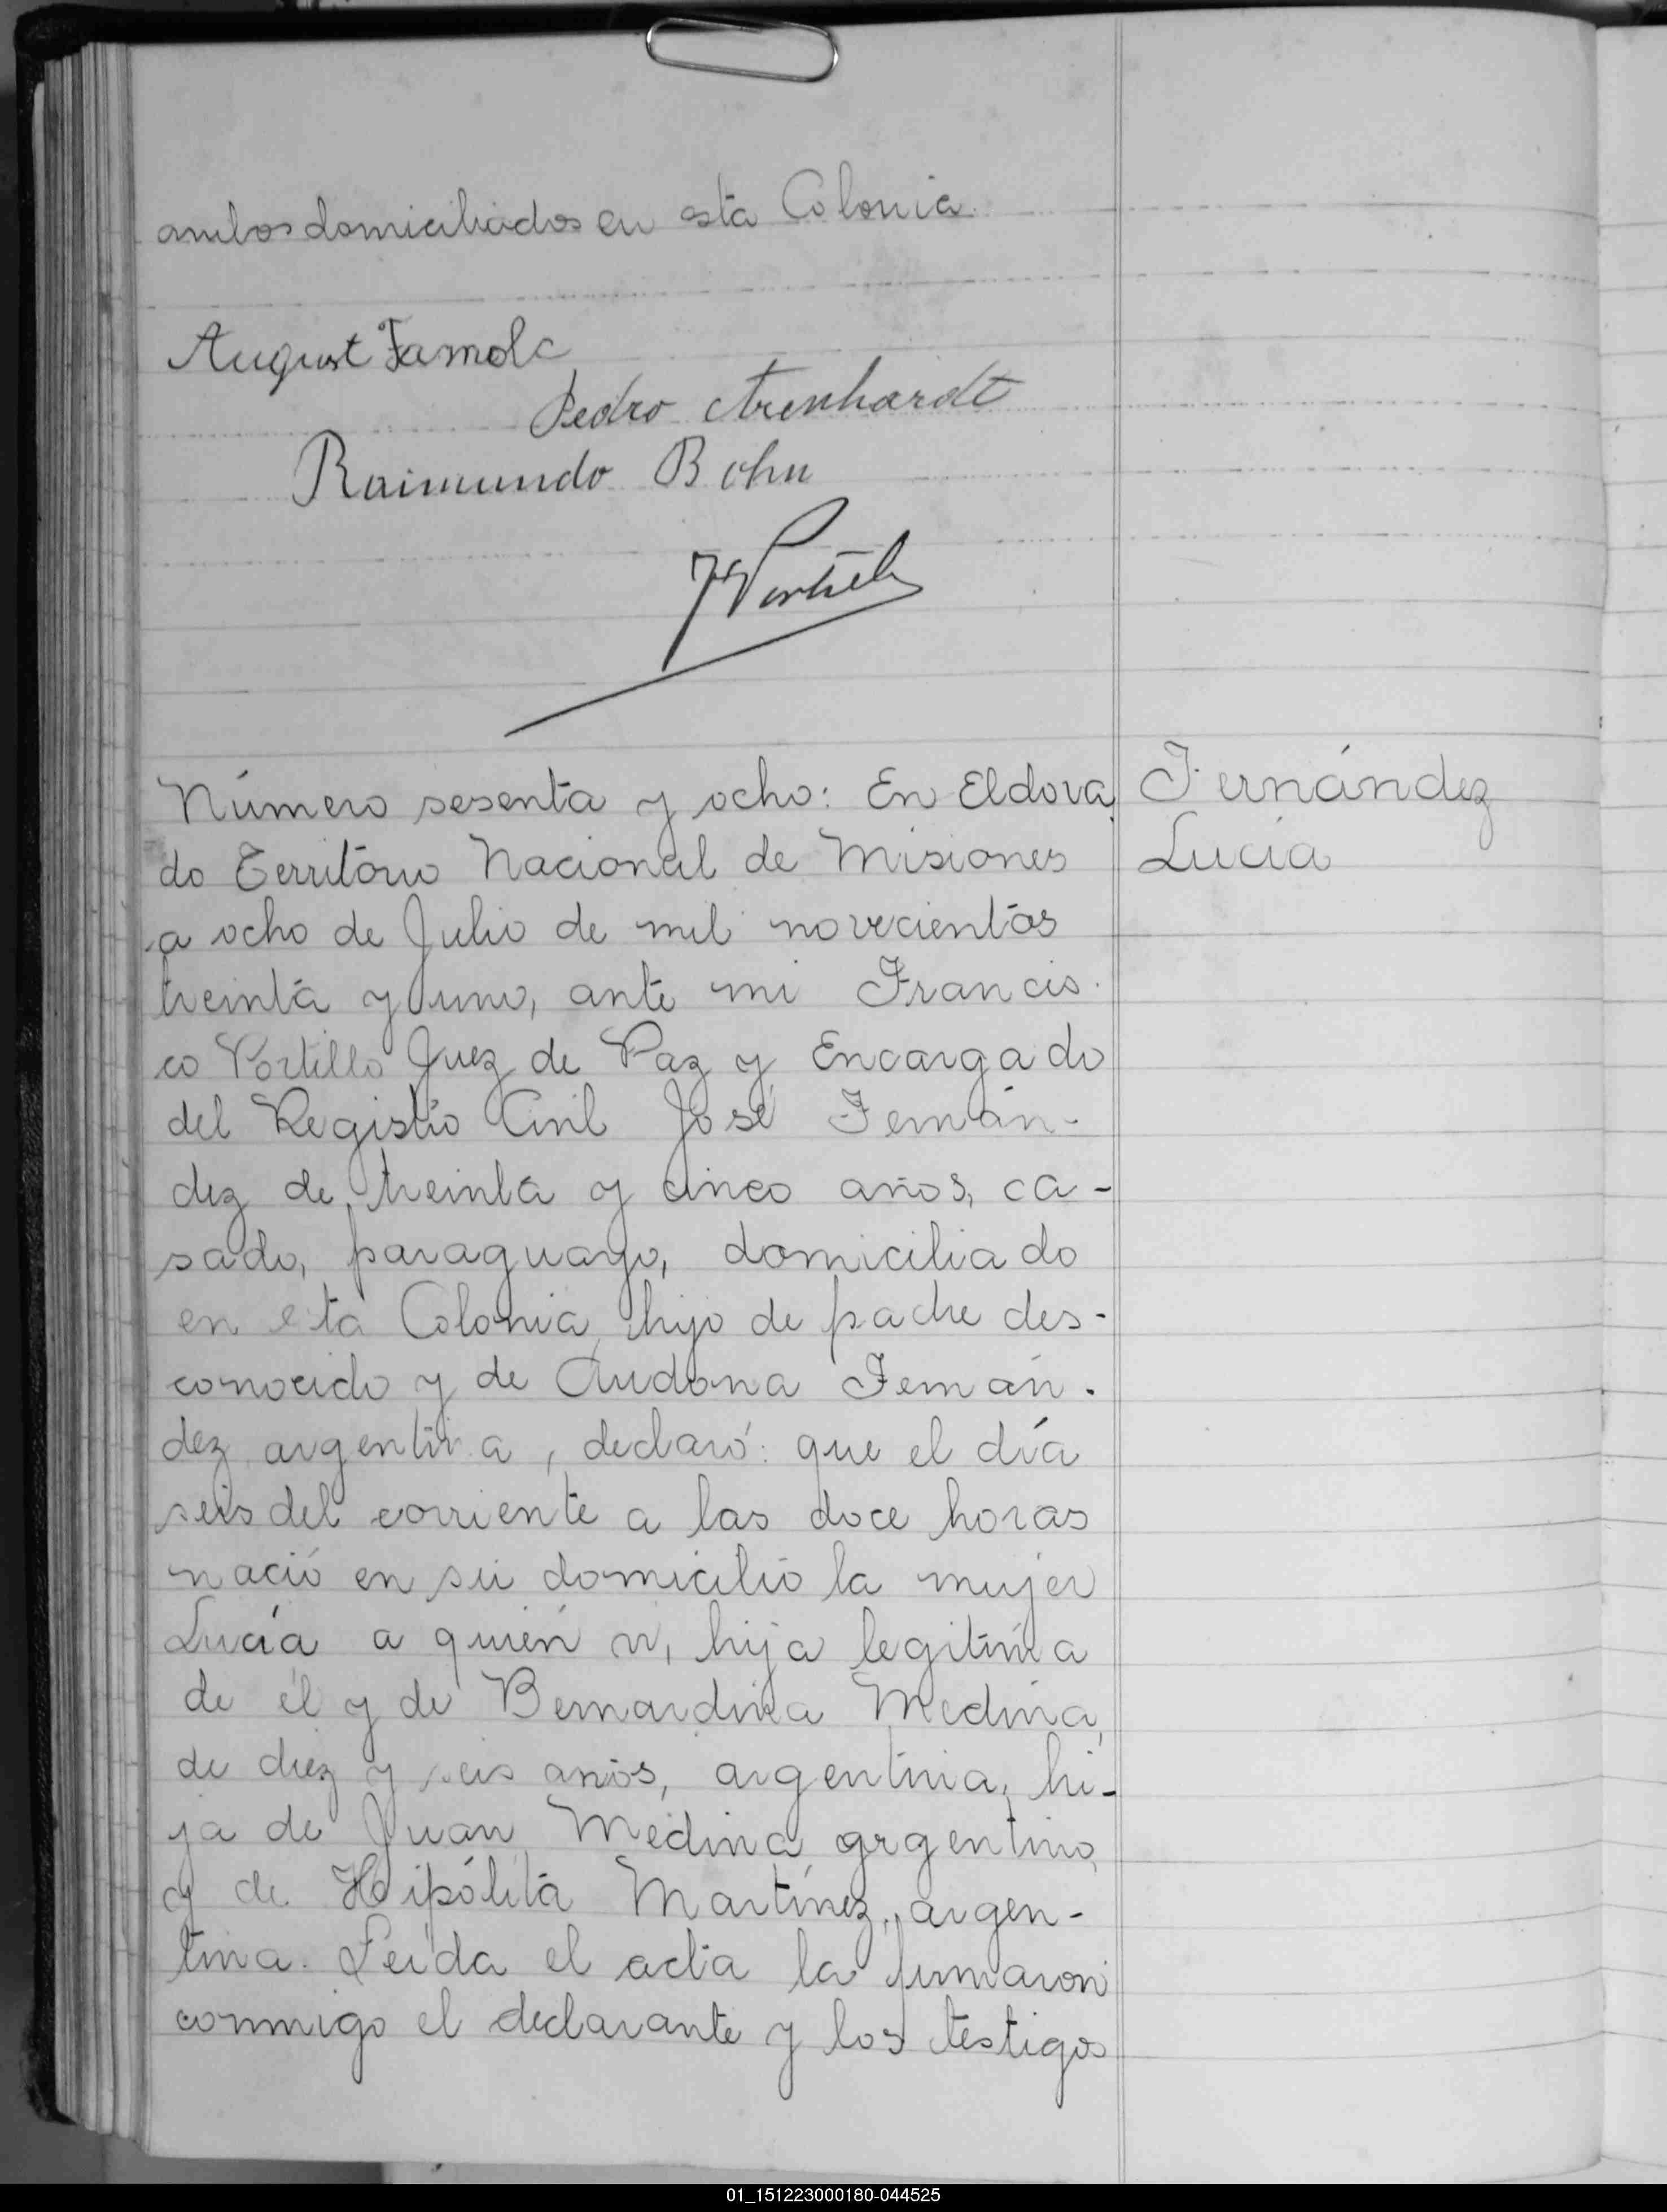 ambos domiciliados en esta Colonia.
August
Pedro Arenhardt
Raimundo Bohn
Número sesenta y ocho: En Eldora
Fernández
do Territorio Nacional de Misiones
Lucía
a ocho de Julio de mil novecientos
treinta y uno, ante mi Francis-
co Portillo Juez de Paz y Encargado
del Registro Civil José Fernán-
dez de treinta y cinco años, ca-
sado, paraguayo, domiciliado
en esta Colonia, hijo de padre des-
conocido y de Audona Fernán-
dez argentina, declaró: que el día
seis del corriente a las doce horas
nació en su domicilio la mujer
Lucía a quién vi, hija legítima
de él y de Bernardina Medina,
de diez y seis años, argentina, hi-
ja de Juan Medina argentino,
y de Hipólita Martínez, argen-
tina. Leída el acta la firmaron
conmigo el declarante y los testigos
01_151223000180-044525